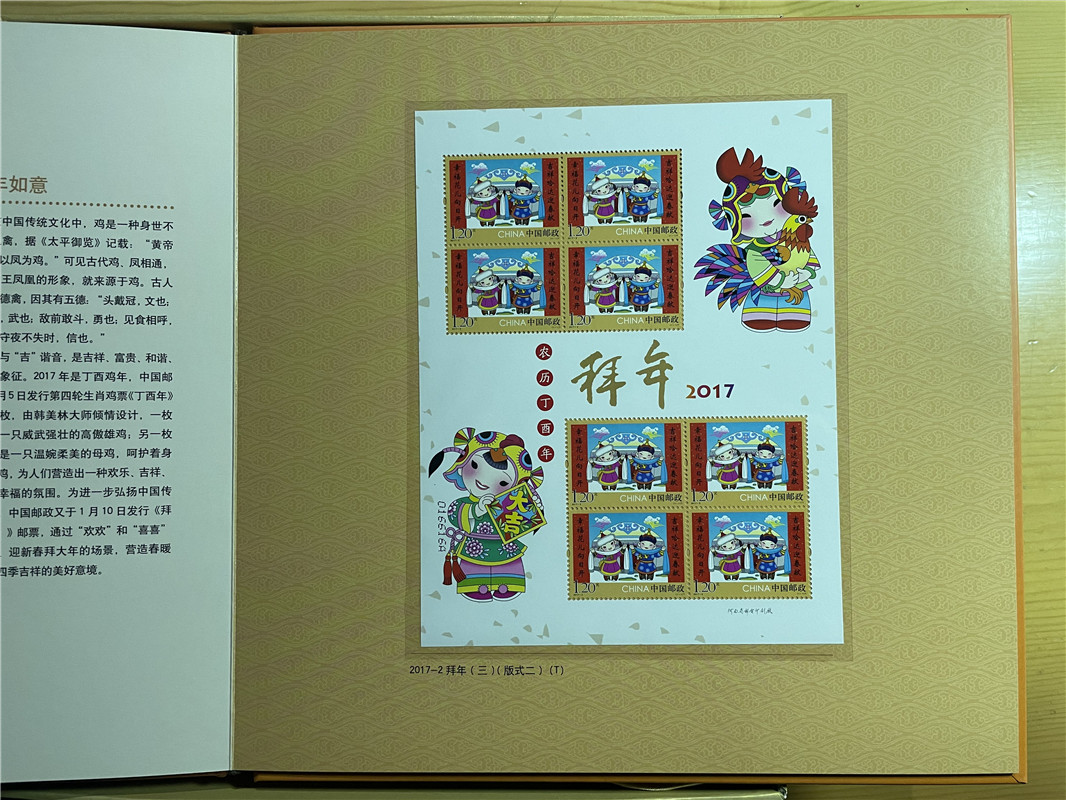 年如意
中国传统文化中，鸡是一种身世不
禽，据《太平御览》记载：“黄帝
以凤为鸡。”可见古代鸡、凤相通，
王凤凰的形象，就来源于鸡。古人
德禽，因其有五德：“头戴冠，文也；
，武也；敌前敢斗，勇也；见食相呼，
守夜不失时，信也。”
与“吉”谐音，是吉祥、富贵、和谐、
象征。2017 年是丁酉鸡年，中国邮
月5日发行第四轮生肖鸡票《丁酉年》
枚，由韩美林大师倾情设计，一枚
一只威武强壮的高傲雄鸡；另一枚
是一只温婉柔美的母鸡，呵护着身
鸡，为人们营造出一种欢乐、吉祥、
幸福的氛围。为进一步弘扬中国传
中国邮政又于 1 月 10 日发行《拜
》邮票，通过“欢欢”和“喜喜”
迎新春拜大年的场景，营造春暖
四季吉祥的美好意境。
幸福花儿向日开
吉祥哈达迎春献
1.20元
CHINA 中国邮政
幸福花儿向日开
吉祥哈达迎春献
1.20元
CHINA 中国邮政
幸福花儿向日开
吉祥哈达迎春献
1.20元
CHINA 中国邮政
幸福花儿向日开
吉祥哈达迎春献
1.20元
CHINA 中国邮政
农历丁酉年
拜年 2017
大吉
016616A
幸福花儿向日开
吉祥哈达迎春献
1.20元
CHINA 中国邮政
幸福花儿向日开
吉祥哈达迎春献
1.20元
CHINA 中国邮政
幸福花儿向日开
吉祥哈达迎春献
1.20元
CHINA 中国邮政
幸福花儿向日开
吉祥哈达迎春献
1.20元
CHINA 中国邮政
河南省邮电印刷厂
2017-2 拜年（三）（版式二）（T）